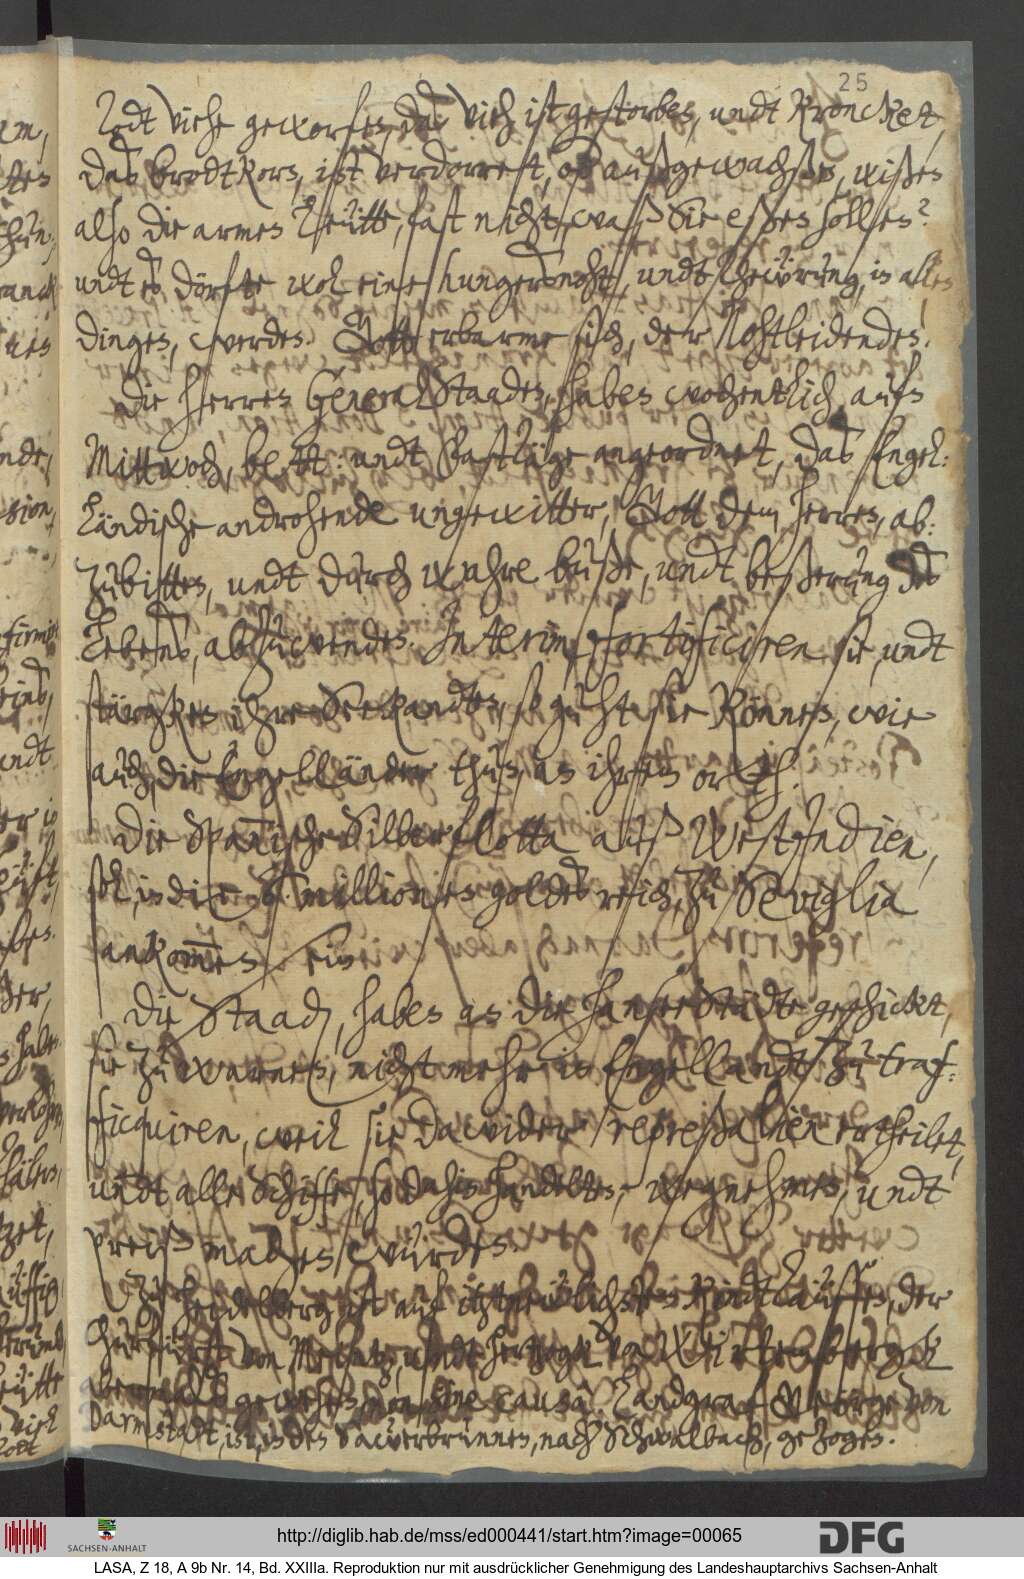 25
Todt viehe geworfen, das vieh ist gestorben, undt kroncket,
das brodtkorn, ist verdorret, od außgewachßen, wißen
also die armen Leütte, fast nicht, waß Sie eßen sollen?
undt es dörfte wol eine hungersnoht, undt Thewrung, in allen
dingen, werden. Gott erbarme sich, der Nohtleidenden.
Die Herren General Staaden, haben wochentlich, aufn
Mittwoch, beth: undt Fasttäge angeordnet, das Engel-
ländische androhende ungewitter, Gott dem Herren, ab-
zubitten, undt durch wahre buße, undt beßerung des
Lebens, abzuwenden. Interim, fortificiren sie, undt
stärcken ihre Seekandten, so guht sie können, wie
auch die Engelländer thun, an ihrem orth.
Die Spannische Silberflotta auß WestIndien,
soll, in die millionen goldes reich, zu Seviglia
ankommen sein
Die Staad, haben an die HanseeStädte geschicket,
sie zu warnen, nicht mehr in Engellandt zu traf-
ficquiren, weil sie dawider repreßalien ertheilet,
undt alle Schiffe, so dahin handelten, wegnehmen, undt
preiß machen würden.
Zu Heidelberg ist auf itzt kindtäuffen, der
Churfürst von Meintz, undt Hertzogk von Wirtembergk
abermals gewesen, non sine causa. Landgraf George von
Darmstadt, ist, in den Sauerbrunnen, nach Schwalbach, gezogen.
SACHSEN-ANHALT
http://diglib.hab.de/mss/ed000441/start.htm?image=00065
DFG
LASA, Z 18, A 9b Nr. 14, Bd. XXIIIa. Reproduktion nur mit ausdrücklicher Genehmigung des Landeshauptarchivs Sachsen-Anhalt